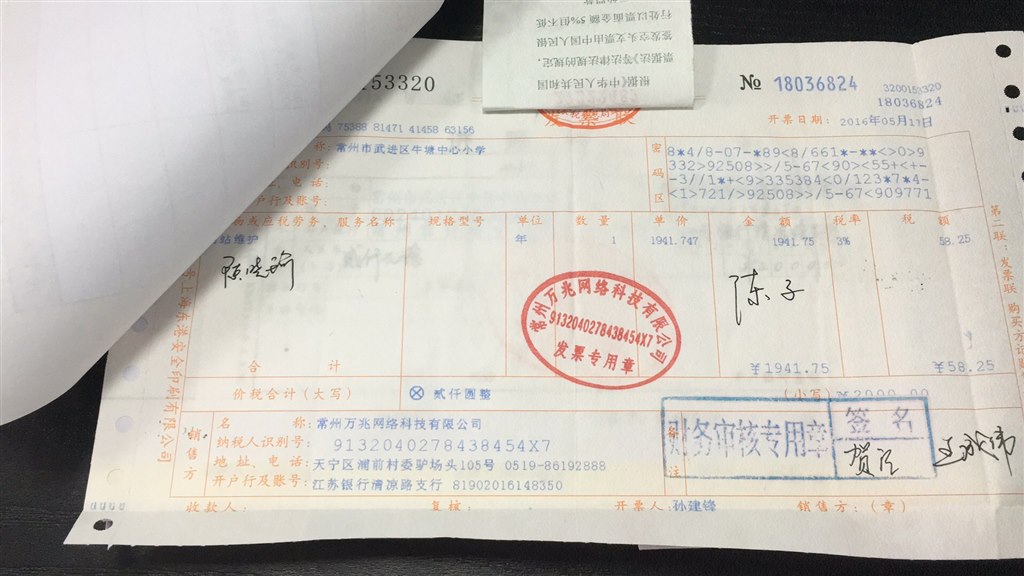 根据《中华人民共和国
票据法》等法律法规的规定，
签发空头支票由中国人民银
行处以票面金额5%但不低
153320
№ 18036824
3200153320
18036824
开票日期： 2016年05月17日
75388 81471 41458 63156
称：常州市武进区牛塘中心小学
别号：
、电话：
户行及账号：
密码区
8*4/8-07-*89<8/661*-**<>0>9
332>92508>>/5-67<90><55+<+-
-3//1*+<9>335384<0/123*7*4-
<1>721/>92508>>/5-67<909771
物或应税劳务、服务名称 规格型号 单位 数量 单价 金额 税率 税额
站维护 年 1 1941.747 1941.75 3% 58.25
陈子
常州万兆网络科技有限公司
9132040278438454X7
发票专用章
合计 ¥1941.75 ¥58.25
价税合计（大写） ⊗ 贰仟圆整 （小写）¥2000.00
销售方
名称：常州万兆网络科技有限公司
纳税人识别号： 9132040278438454X7
地址、电话：天宁区浦前村委驴场头105号 0519-86192888
开户行及账号：江苏银行清凉路支行 81902016148350
备注
财务审核专用章
签名
收款人： 复核： 开票人：孙建锋 销售方：（章）
第二联：发票联 购买方记账